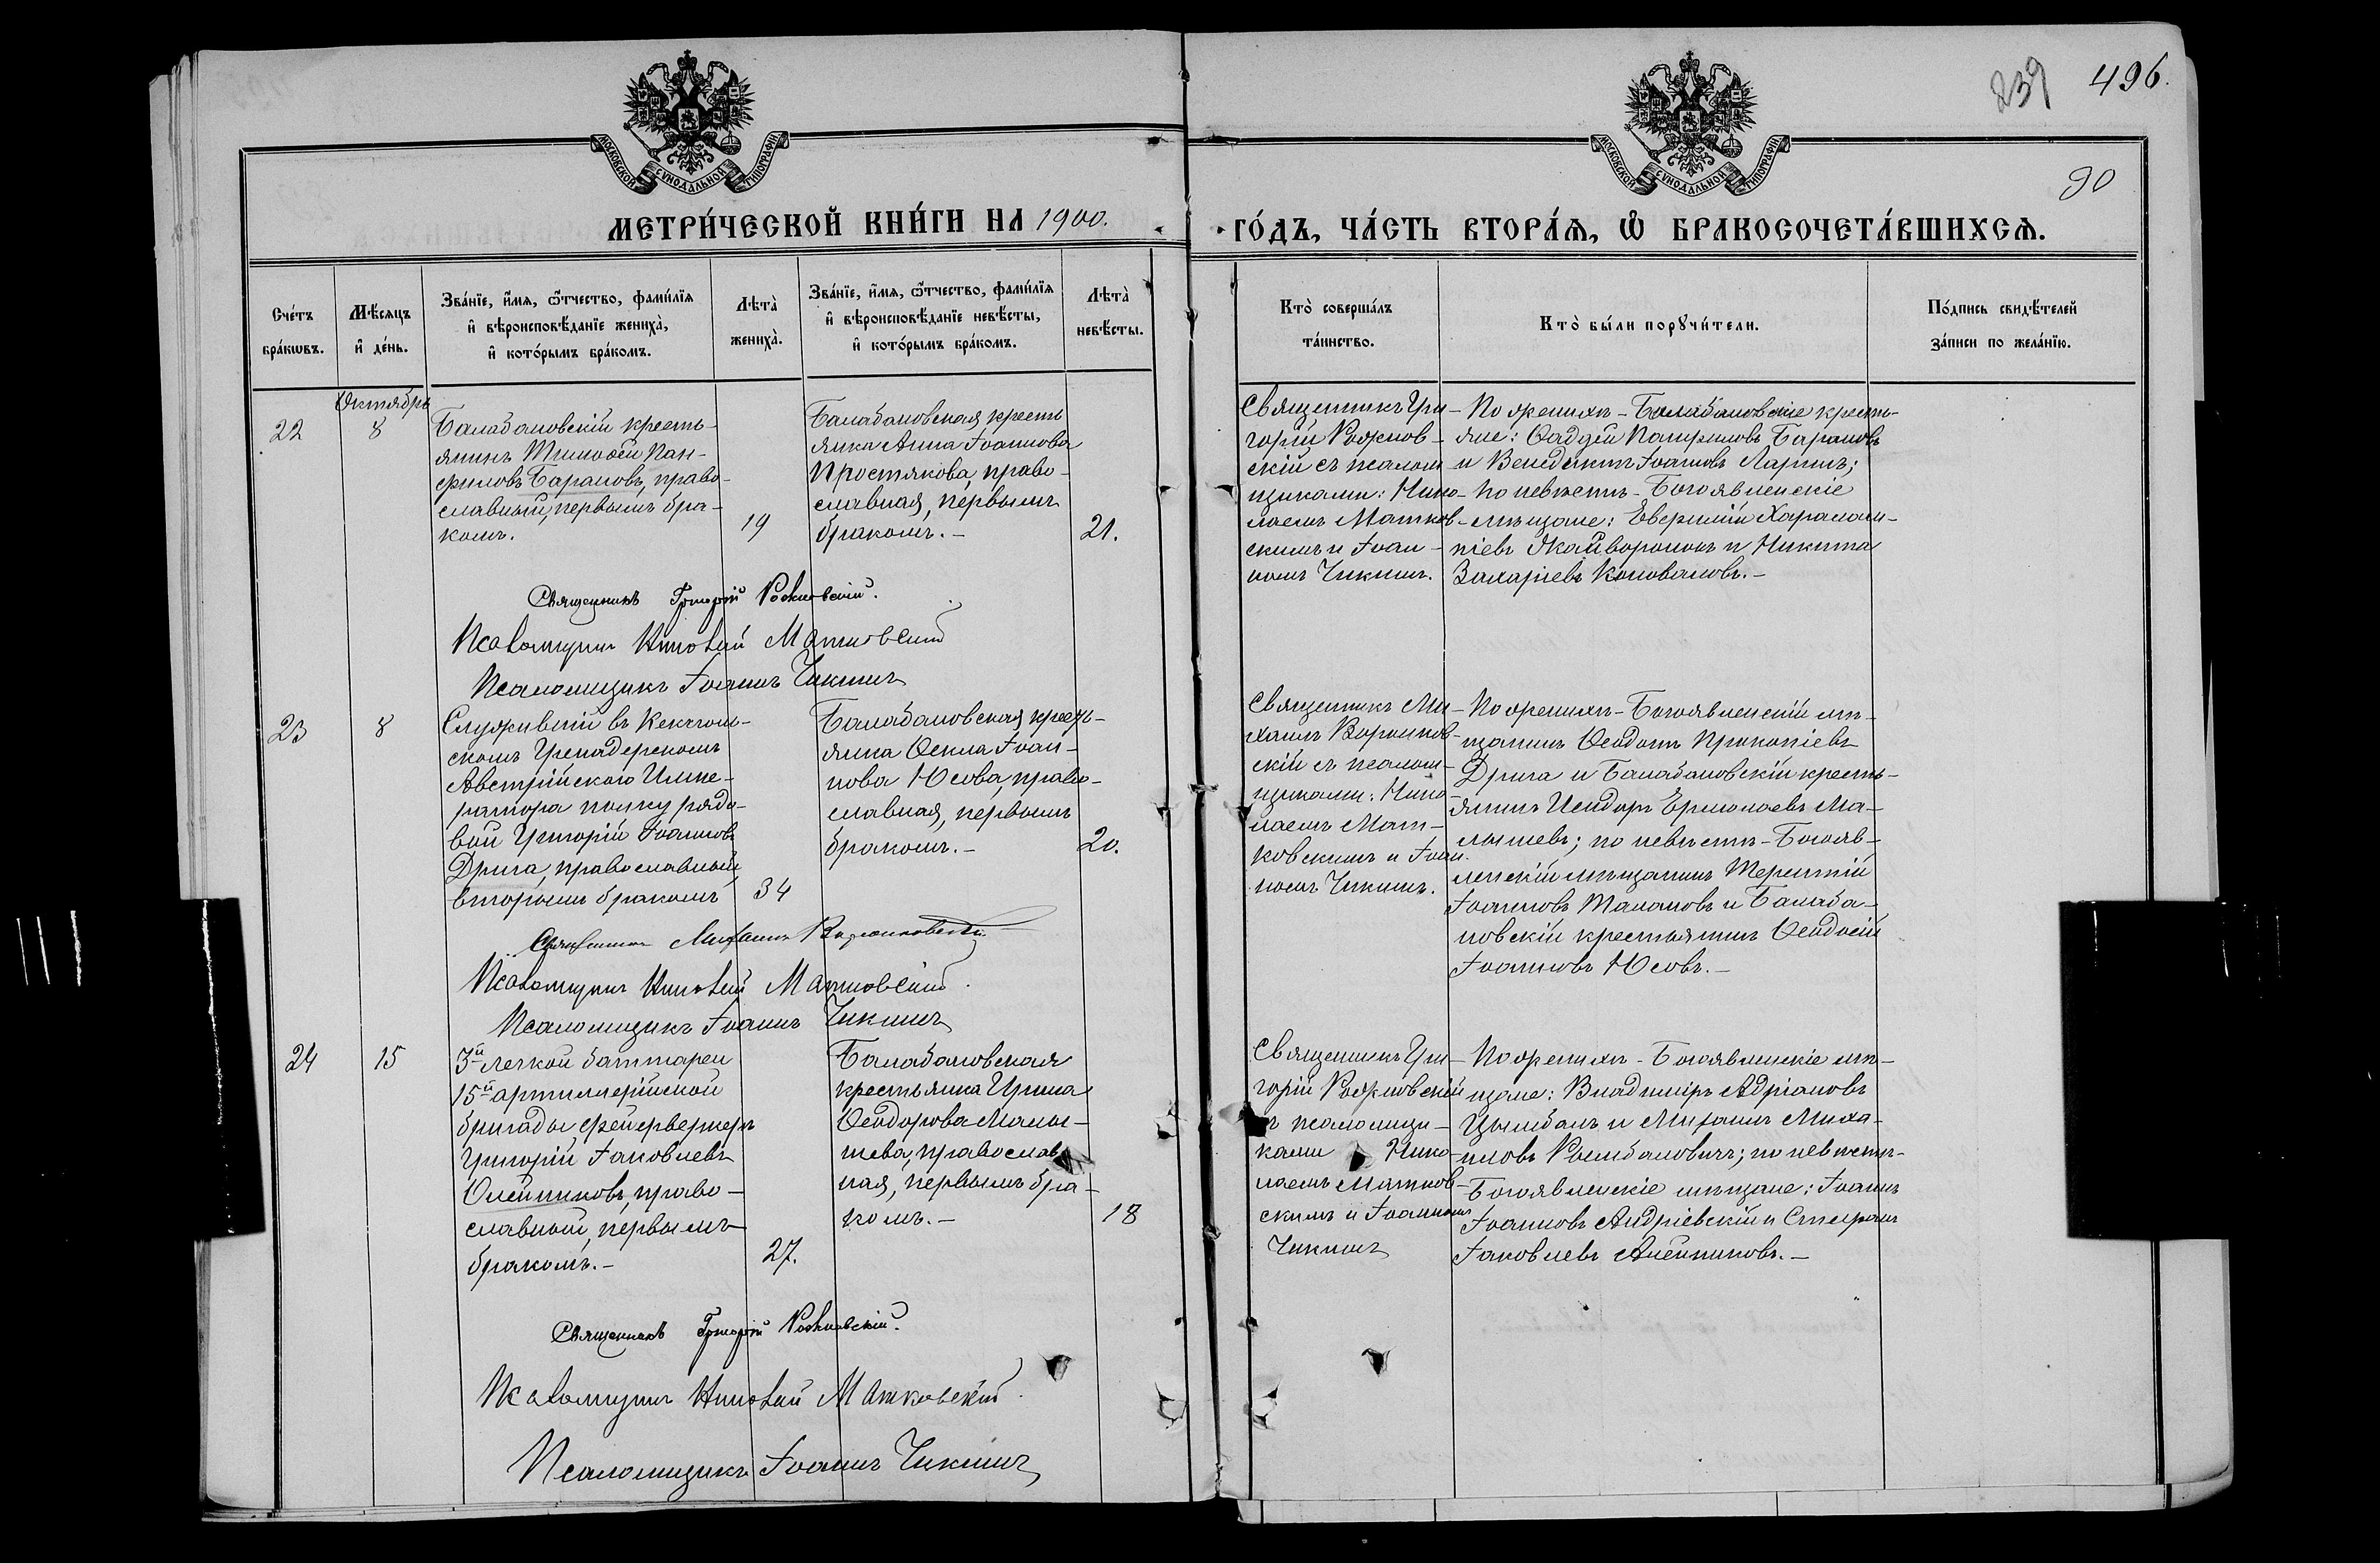 239 496.
90
МОСКОВСКОЙ СѴНОДАЛЬНОЙ ТИПОГРАФІИ
МОСКОВСКОЙ СѴНОДАЛЬНОЙ ТИПОГРАФІИ
МЕТРИ́ЧЕСКОЙ КНИ́ГИ НА 1900.
ГО́ДЪ, ЧА́СТЬ ВТОРА́Ѧ, Ѽ БРАКОСОЧЕТА́ВШИХСѦ.
Сче́тъ
бра́кѡвъ.
Мѣ́сяцъ
и҆ де́нь.
Зва́нїе, и҆́мѧ, ѻ҆́тчество, фами́лїѧ
и҆ вѣроисповѣ́данїе жениха̀,
и҆ кото́рымъ бра́комъ.
Лѣта̀
жениха̀.
Зва́нїе, и҆́мѧ, ѻ҆́тчество, фами́лїѧ
и҆ вѣроисповѣ́данїе невѣ́сты,
и҆ кото́рымъ бра́комъ.
Лѣта̀
невѣ́сты.
Кто̀ соверша́лъ
та́инство.
Кто̀ бы́ли порꙋчи́тели.
По́дпись свидѣ́телей
за́писи по жела́нїю.
22
Октябрь
8
Балабановскій кресть-
янинъ Тимоѳей Пан-
филовъ Барановъ, право-
славный, первымъ бра-
комъ.
19
Балабановская кресть
янка Анна Іоаннова
Простякова, право-
славная, первымъ
бракомъ.-
21.
Священникъ Гри-
горій Рожнов-
скій съ псалом-
щиками: Нико-
лаемъ Матков-
скимъ и Іоан-
номъ Чикинъ.
По женихѣ - Балабановскіе кресть-
яне: Ѳаддей Панфиловъ Барановъ
и Венедиктъ Іоанновъ Ларинъ;
по невѣстѣ - Богоявленскіе
мѣщане: Евфимій Харалам-
піевъ Жайворонокъ и Никита
Захаріевъ Коноваловъ.-
Священникъ Григорій Рожновскій.
Псаломщикъ Николай Матковскій
Псаломщикъ Іоаннъ Чикинъ
23
8
Служившій въ Кексгольм-
скомъ Гренадерскомъ
Австрійскаго Импе-
ратора полку рядо-
вой Григорій Іоанновъ
Дрига, православный,
вторымъ бракомъ
34
Балабановская кресть-
янка Ѳекла Іоан-
нова Юсова, право-
славная, первымъ
бракомъ.-
20.
Священникъ Ми-
хаилъ Воронков-
скій съ псалом-
щиками: Нико-
лаемъ Мат-
ковскимъ и Іоан-
номъ Чикинъ.
По женихѣ - Богоявленскій мѣ-
щанинъ Ѳеодотъ Прокопіевъ
Дрига и Балабановскій кресть-
янинъ Исидоръ Ермолаевъ Ма-
лышевъ; по невѣстѣ - Богояв-
ленскій мѣщанинъ Терентій
Іоанновъ Талановъ и Балаба-
новскій крестьянинъ Ѳеодосій
Іоанновъ Юсовъ.-
Священникъ Михаилъ Воронковскій
Псаломщикъ Николай Матковскій.
Псаломщикъ Іоаннъ Чикинъ
24
15
3й легкой баттареи
15й артиллерійской
бригады фейерверкеръ
Григорій Іаковлевъ
Олейниковъ, право-
славный, первымъ
бракомъ.-
27.
Балабановская
крестьянка Ирина
Ѳеодорова Малы-
шева, православ-
ная, первымъ бра-
комъ.-
18
Священникъ Гри-
горій Рожновскій
съ псаломщи-
ками Нико-
лаемъ Матков-
скимъ и Іоанномъ
Чикинъ
По женихѣ - Богоявленскіе мѣ-
щане: Владиміръ Адріановъ
Цымбалъ и Михаилъ Миха-
иловъ Рымбаловичъ; по невѣстѣ-
Богоявленскіе мѣщане: Іоаннъ
Іоанновъ Андріевскій и Стефанъ
Іаковлевъ Алейниковъ.-
Священникъ Григорій Рожновскій.
Псаломщикъ Николай Матковскій.
Псаломщикъ Іоаннъ Чикинъ